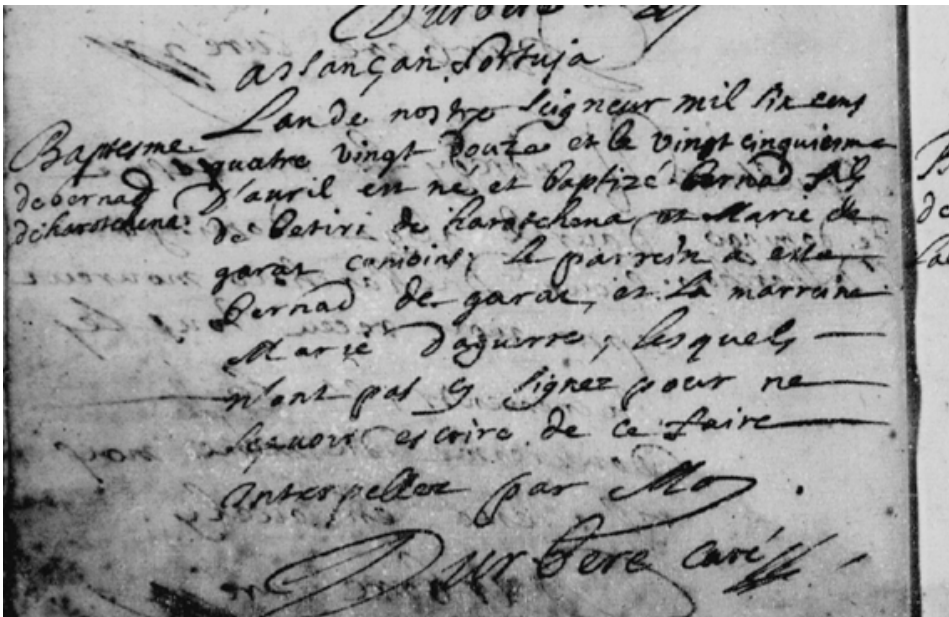 Durbere
assançan Sortuja
Baptesme
de bernad
de harotchena
Lan de nostre seigneur mil six cens
quatre vingt douze et le vingt cinquiesme
d'auril est né et baptizé bernad fils
de betiri de harotchena et Marie de
garat conioins, le parrein a este
bernad de garat, et la marreine
Marie daguerre, lesquels
n'ont pas signez pour ne
sçauoir escrire de ce faire
interpellez par Moy
Durbere curé